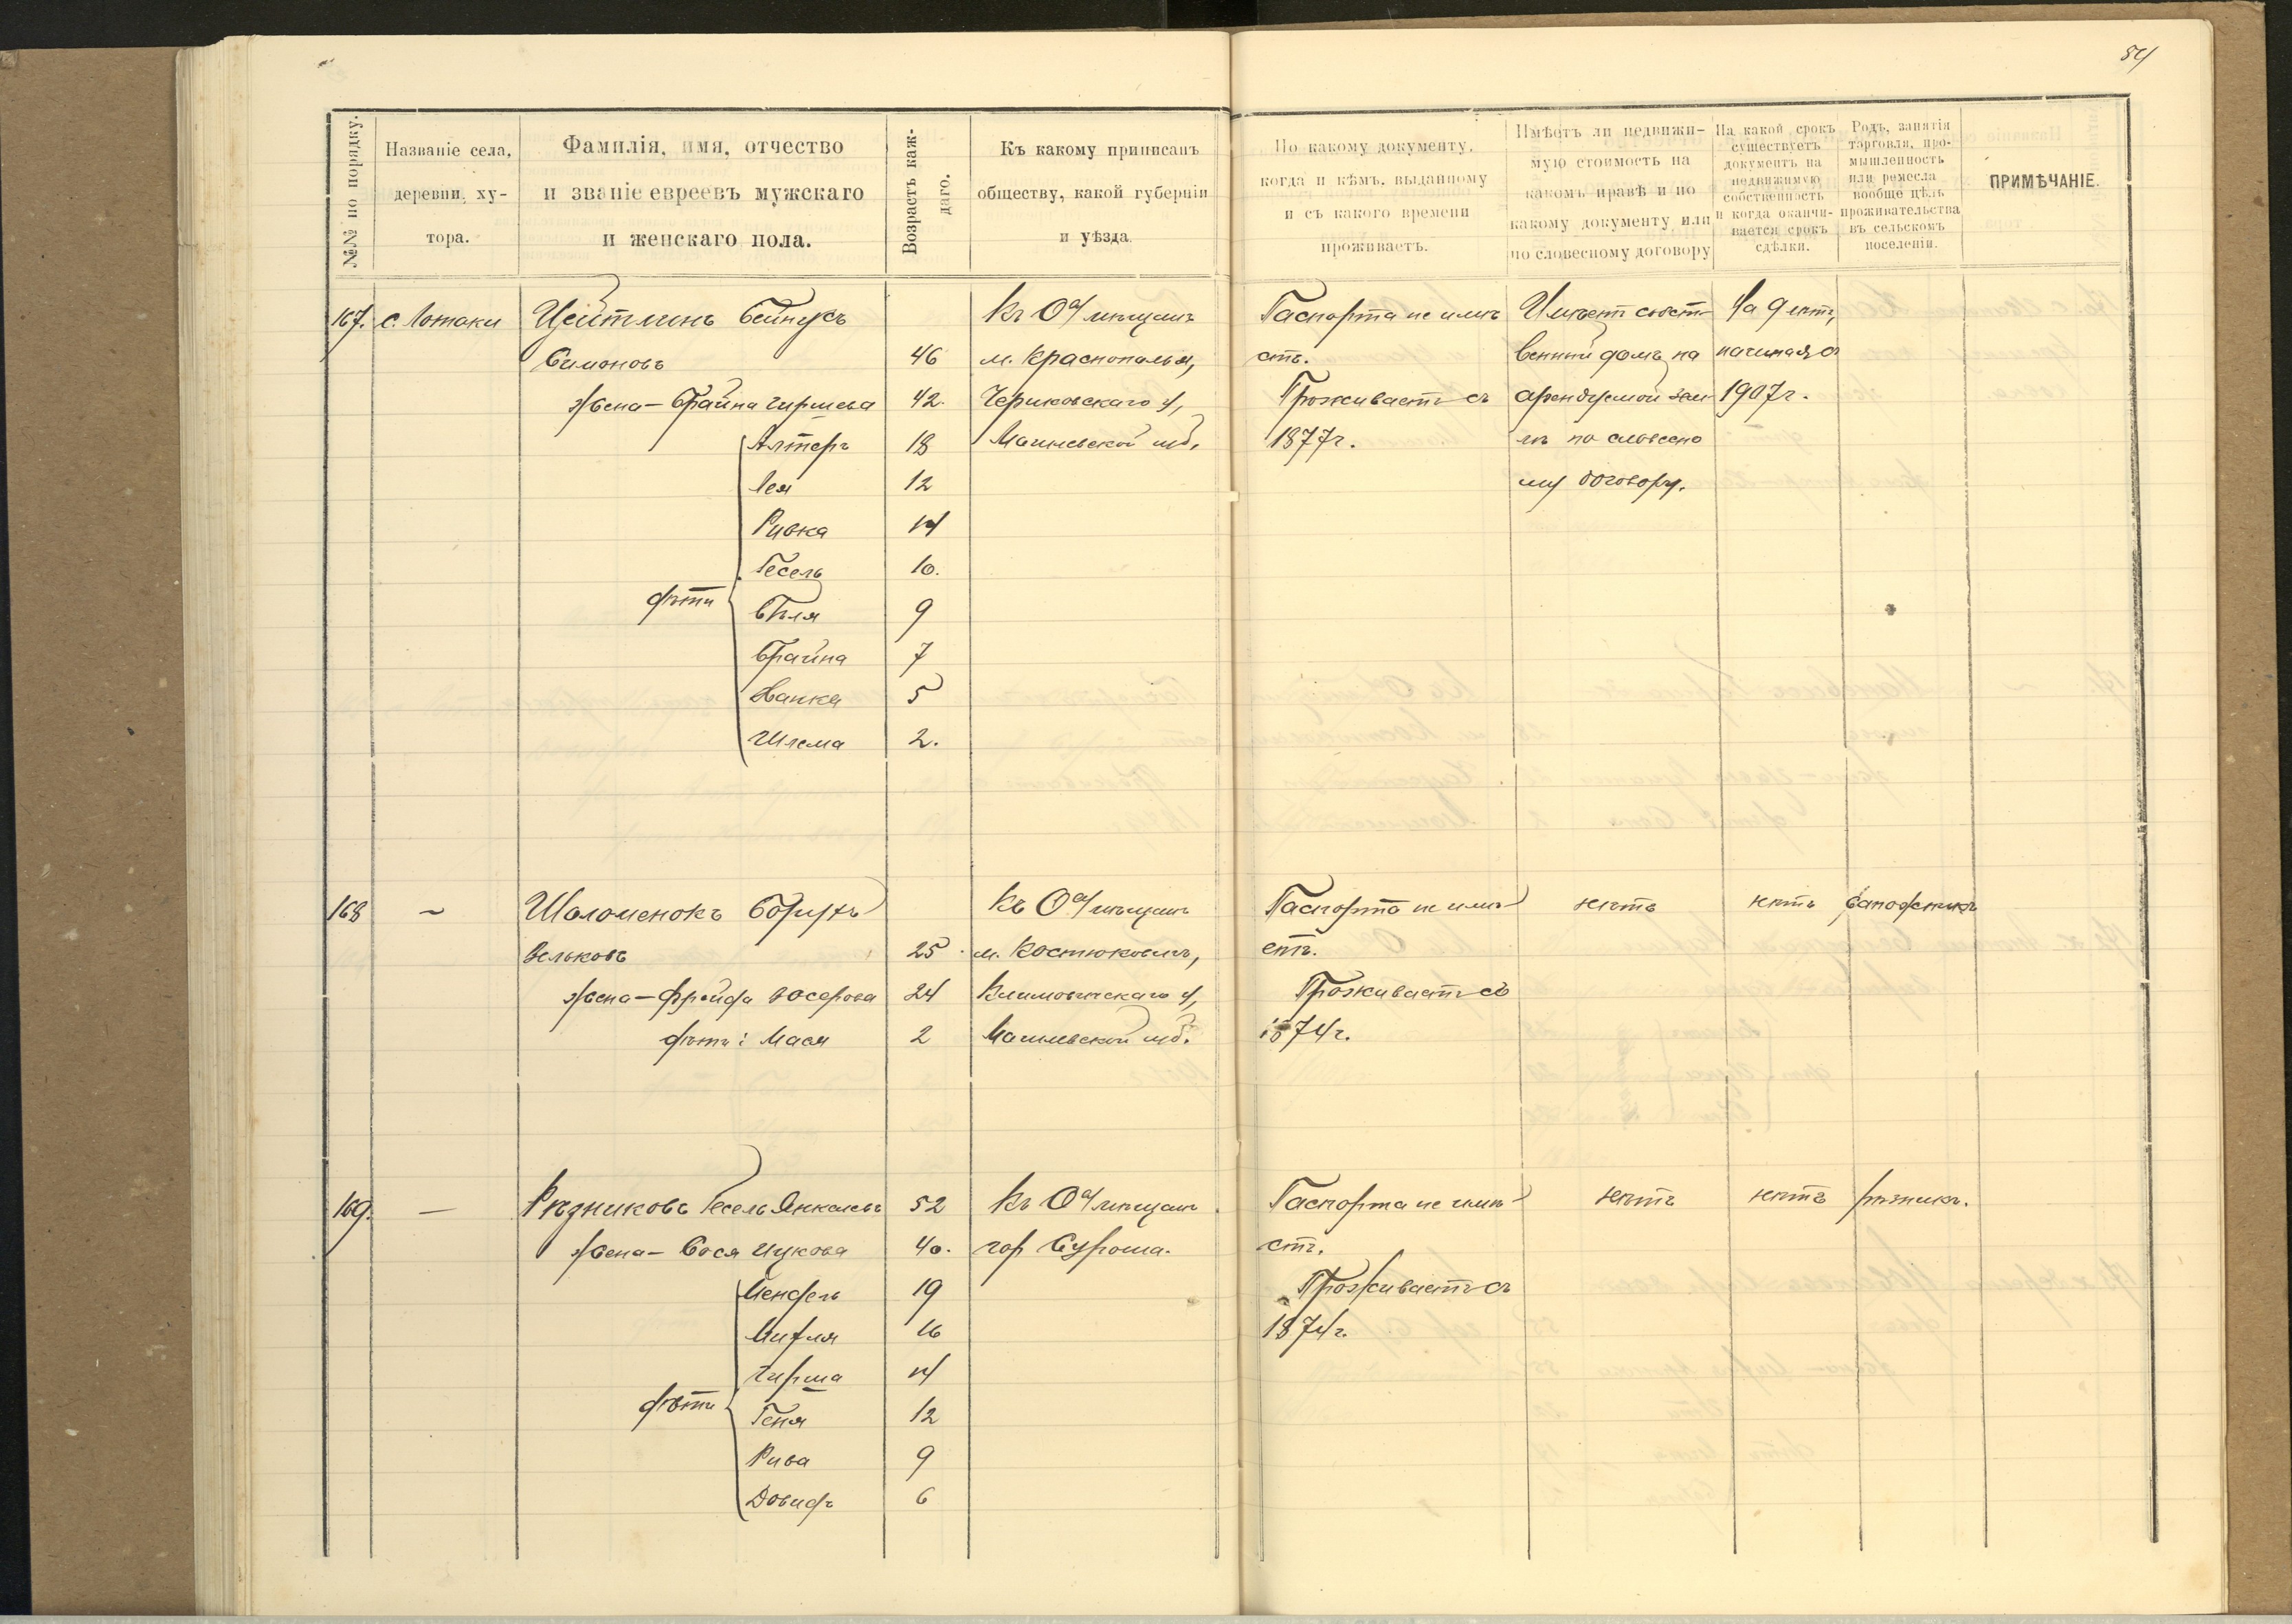 54
№№ по порядку.
Названіе села,
деревни, ху-
тора.
Фамилія, имя, отчество
и званіе евреевъ мужскаго
и женскаго пола.
Возрастъ каж-
даго.
Къ какому приписанъ
обществу, какой губерніи
и уѣзда.
По какому документу,
когда и кѣмъ, выданному
и съ какого времени
проживаетъ.
Имѣетъ ли недвижи-
мую стоимость на
какомъ правѣ и по
какому документу или
по словесному договору
На какой срокъ
существуетъ
документъ на
недвижимую
собственность
и когда оканчи-
вается срокъ
сдѣлки.
Родъ, занятія
торговля, про-
мышленность
или ремесла
вообще цѣль
проживательства
въ сельскомъ
поселеніи.
ПРИМѢЧАНІЕ.
167. с. Лотаки Цейтлинъ Бейнусъ Къ О-у мѣщанъ Паспорта не имѣ Имѣетъ собст- На 9 лѣтъ,
Симоновъ 46 м. Краснополья, етъ. венный домъ на начиная съ
жена - Брайна Гиршева 42. Чериковскаго у, Проживаетъ съ арендуемой зем 1907 г.
Алтеръ 18 Могилевской губ. 1877 г. лѣ по словесно
Лея 12 му договору.
Ривка 14
Гесель 10.
дѣти Бѣля 9
Брайна 7
Ханка 5
Шлема 2.
168 ~ Шоломенокъ Борухъ Къ О-у мѣщанъ Паспорта не имѣ- нѣтъ нѣтъ сапожникъ
Зельковъ 25 м. Костюковичъ, етъ.
жена - Фрейда Іосерова 24 Климовичскаго у, Проживаетъ съ
дѣти: Мася 2 Могилевской губ. 1874 г.
169. — Рѣзниковъ Гесель Янкелевъ 52 Къ О-у мѣщанъ Паспорта не имѣ- нѣтъ нѣтъ рѣзникъ.
жена - Сося Ицкова 40. гор Суроша. етъ.
Мендель 19 Проживаетъ съ
16 1874 г.
Гирша 14
дѣти Геня 12
Рива 9
Довидъ 6